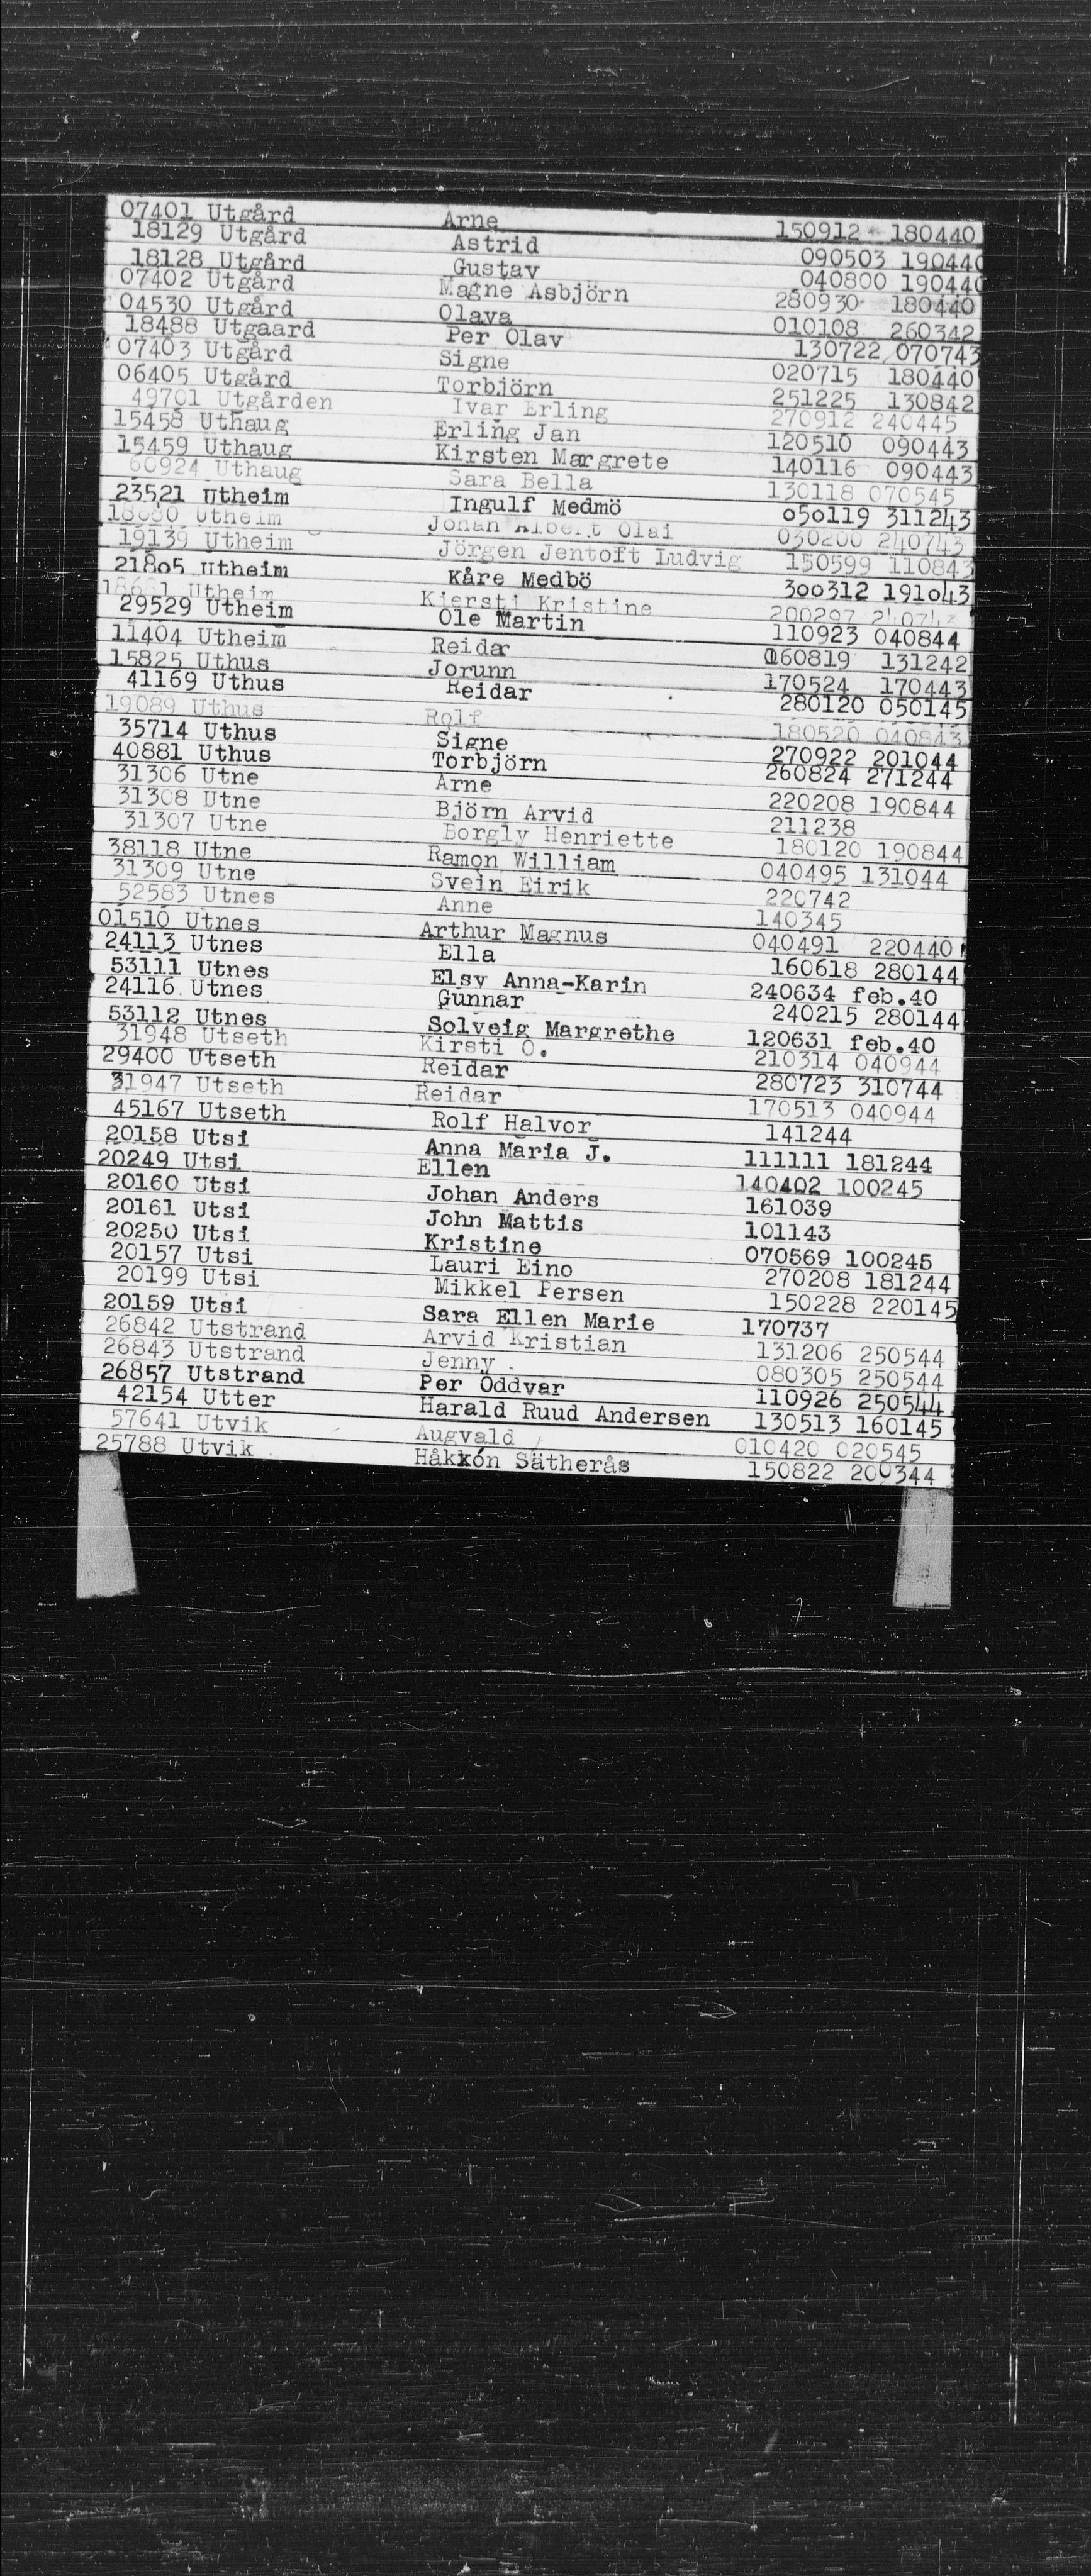 07401 Utgård Arne 150912 180440
18129 Utgård Astrid 090503 190440
18128 Utgård Gustav 040800 190440
07402 Utgård Magne Asbjörn 280930 180440
04530 Utgård Olava 010108 260342
18488 Utgaard Per Olav 130722 070743
07403 Utgård Signe 020715 180440
06405 Utgård Torbjörn 251225 130842
49701 Utgården Ivar Erling 270912 240445
15458 Uthaug Erling Jan 120510 090443
15459 Uthaug Kirsten Margrete 140116 090443
60924 Uthaug Sara Bella 130118 070545
23521 Utheim Ingulf Medmö 050119 311243
Utheim Johan Albert Olai 030200 240743
19139 Utheim Jörgen Jentoft Ludvig 150599 110843
21805 Utheim Kåre Medbö 300312 191043
Utheim Kjersti Kristine 200297
29529 Utheim Ole Martin 110923 040844
11404 Utheim Reidar 060819 131242
15825 Uthus Jorunn 170524 170443
41169 Uthus Reidar 280120 050145
19089 Uthus Rolf 180520 040843
35714 Uthus Signe 270922 201044
40881 Uthus Torbjörn 260824 271244
31306 Utne Arne 220208 190844
31308 Utne Björn Arvid 211238
31307 Utne Borgly Henriette 180120 190844
38118 Utne Ramon William 040495 131044
31309 Utne Svein Eirik 220742
52583 Utnes Anne 140345
01510 Utnes Arthur Magnus 040491 220440
24113 Utnes Ella 160618 280144
53111 Utnes Elsy Anna-Karin 240634 feb.40
24116 Utnes Gunnar 240215 280144
53112 Utnes Solveig Margrethe 120631 feb.40
31948 Utseth Kirsti O. 210314 040944
29400 Utseth Reidar 280723 310744
31947 Utseth Reidar 170513 040944
45167 Utseth Rolf Halvor 141244
20158 Utsi Anna Maria J. 111111 181244
20249 Utsi Ellen 140402 100245
20160 Utsi Johan Anders 161039
20161 Utsi John Mattis 101143
20250 Utsi Kristine 070569 100245
20157 Utsi Lauri Eino 270208 181244
20199 Utsi Mikkel Persen 150228 220145
20159 Utsi Sara Ellen Marie 170737
26842 Utstrand Arvid Kristian 131206 250544
26843 Utstrand Jenny 080305 250544
26857 Utstrand Per Oddvar 110926 250544
42154 Utter Harald Ruud Andersen 130513 160145
57641 Utvik Augvald 010420 020545
25788 Utvik Håkxón Sätherås 150822 200344